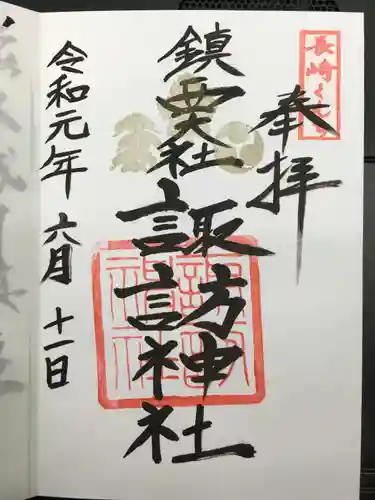 長崎くんち
奉拝
鎮西大社
諏訪神社
令和元年 六月 十一日
諏訪神社